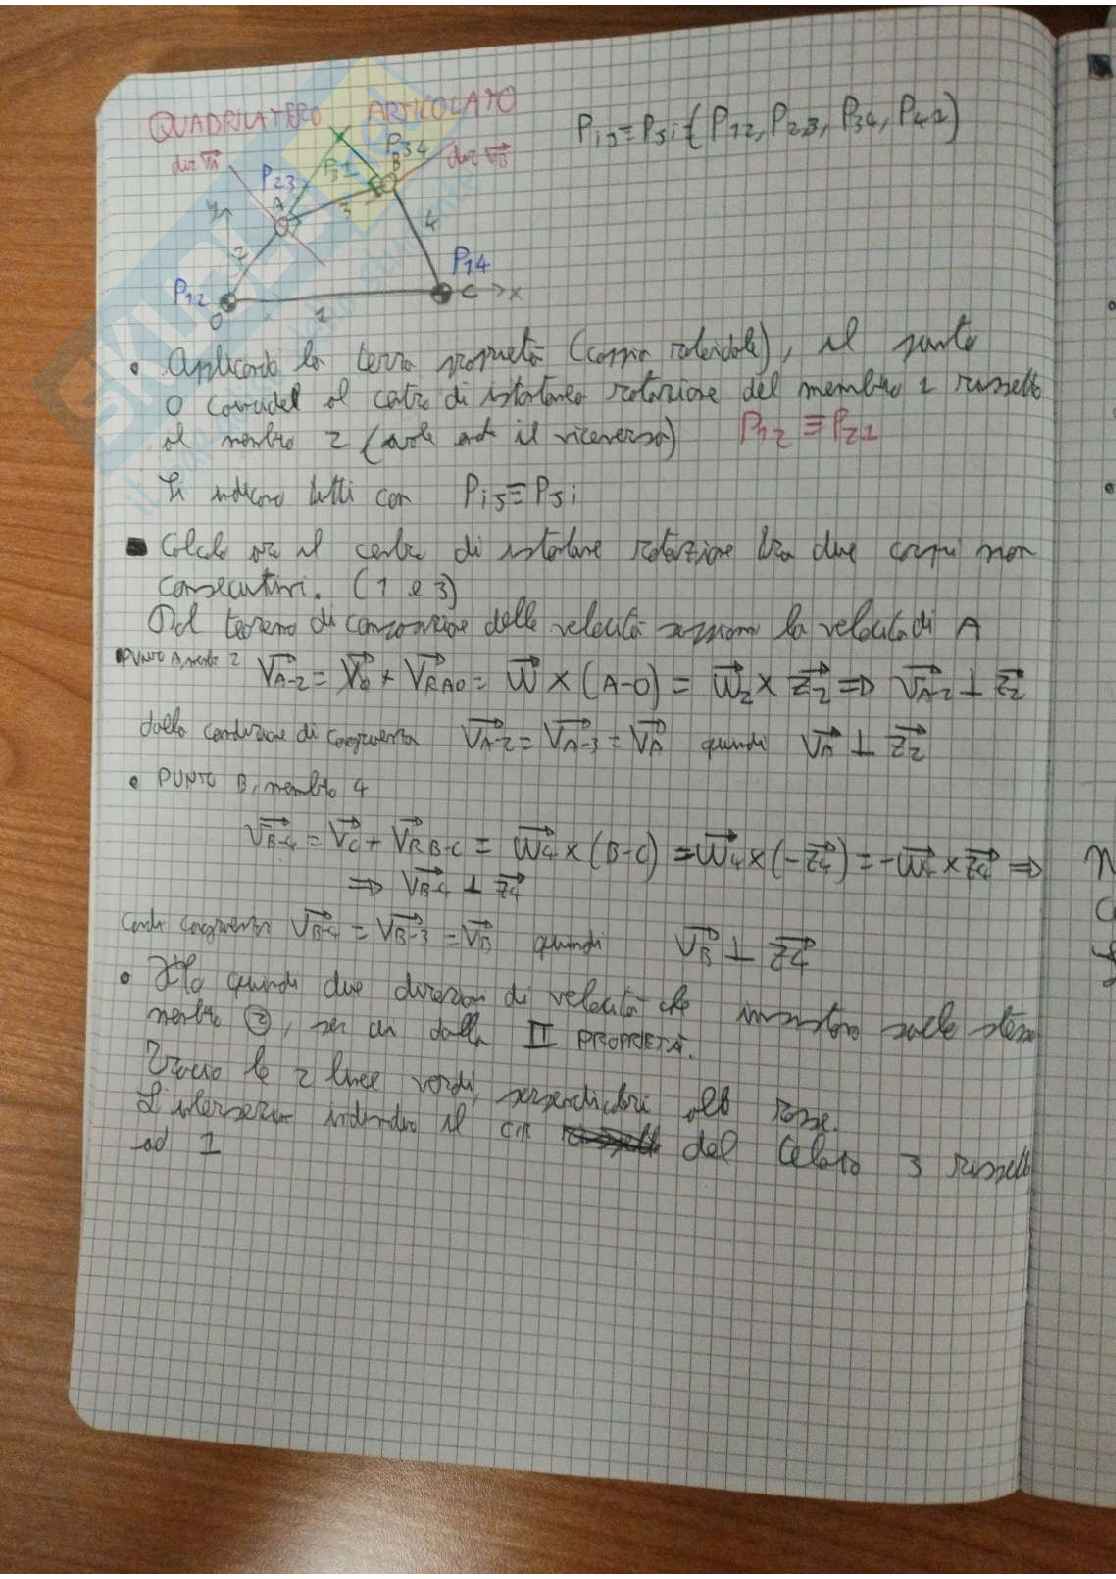 QUADRILATERO ARTICOLATO
Pij≡Pji { P12, P23, P34, P41 }
dir VA
P23
P31
P34
dir VB
A
B
y
2
3
4
P12
P14
O
1
C
x
• Applicando la terza proprietà (coppia rotoidale), il punto
O coincide col centro di istantanea rotazione del membro 1 rispetto
al membro 2 (vale anche il viceversa) P12 ≡ P21
Si indicano tutti con Pij≡Pji
Calcolo ora il centro di istantanea rotazione tra due corpi non
consecutivi. (1 e 3)
Dal teorema di composizione delle velocità scriviamo la velocità di A
• PUNTO A, membro 2 VA-2 = V0 + VRAO = W × (A-O) = W2 × Z2 => VA-2 ⊥ Z2
dalla condizione di congruenza VA-2 = VA-3 = VA quindi VA ⊥ Z2
• PUNTO B, membro 4
VB-4 = VC + VRB-C = W4 × (B-C) = W4 × (-Z4) = -W4 × Z4 =>
=> VB-4 ⊥ Z4
congruenza VB-4 = VB-3 = VB quindi VB ⊥ Z4
• Ho quindi due direzioni di velocità che insistono sullo stesso
membro 3, per cui dalla II PROPRIETÀ.
Traccio le 2 linee verdi, perpendicolari alle rosse.
L'intersezione individua il CIR del Celato 3 rispetto
ad 1